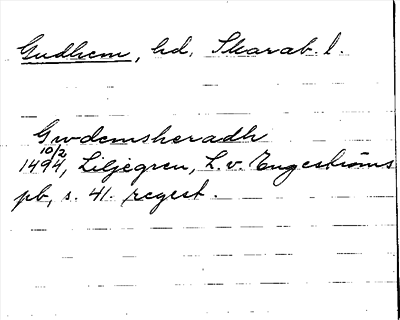 Gudhem, hd, Skarab. l.
Gwdemsheradh
10/2
1494, Liljegren, L. v. Engeströms
pb, s. 41. regest.